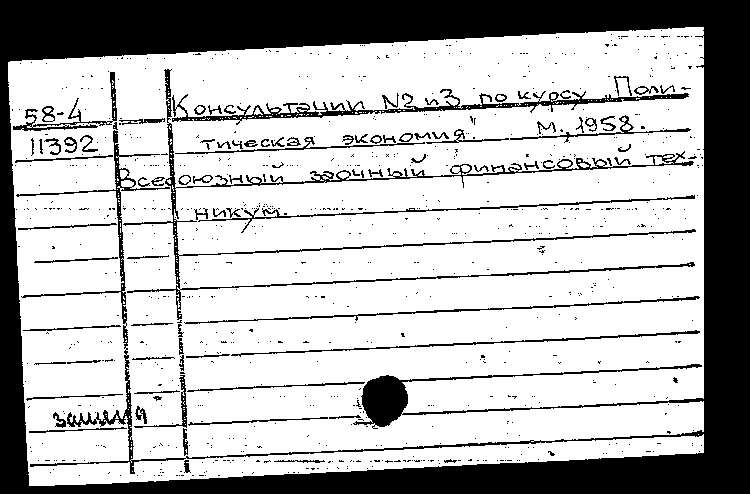 58-4 Консультации №2 и 3 по курсу „Поли-
11392 тическая экономия". М., 1958.
Всесоюзный заочный финансовый тех-
никум.